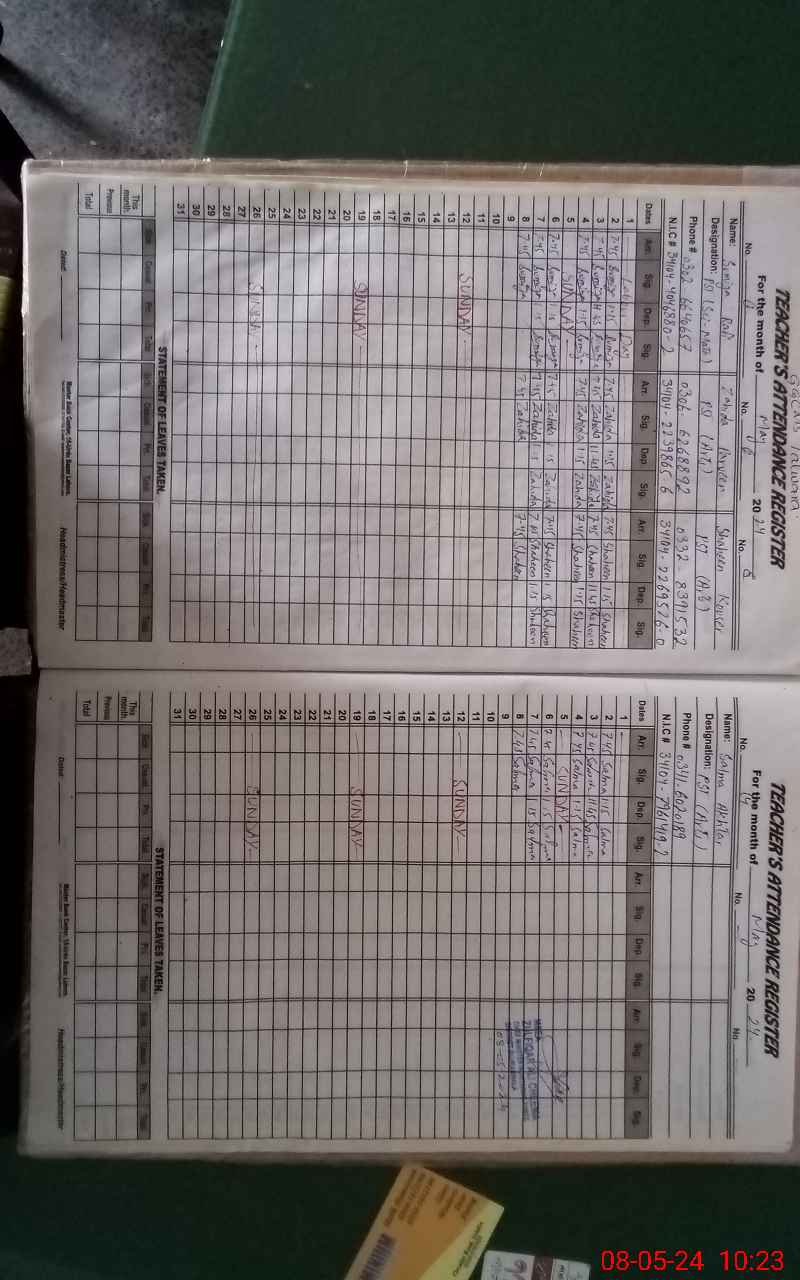 TEACHER'S ATTENDANCE REGISTER
For the month of May 2024
No. No. No. 8
Name: Zahida Parveen Shaheen Kouser
Designation: PST (Sci-Math) PST (Arts) PST
Phone # 0302 6646657 0306-6268892 0332 8391532
N.I.C # 34104-4046880-2 34104-2239865 6 34104-2269526-0
Dates Arr. Sig. Dep. Sig. Arr. Sig. Dep Sig. Arr. Sig. Dep. Sig.
1 Labour Day
2 7:45 1:15 7:45 Zahida 1:15 Zahida 7:45 Shaheen 1:15 Shaheen
3 7:45 11:45 7:45 Zahida 11:45 Zahida 7:45 Shaheen 11:45 Shaheen
4 7:45 1:15 7:45 Zahida 1:15 Zahida 7:45 Shaheen 1:15 Shaheen
5 SUNDAY
6 7:45 1:15 7:45 Zahida 1:15 Zahida 7:45 Shaheen 1:15 Shaheen
7 7:45 1:15 7:45 Zahida 1:15 Zahida Shaheen 1:15 Shaheen
8 7:45 7:45 Zahida 7:45 Shaheen
9
10
11
12 SUNDAY
13
14
15
16
17
18
19 SUNDAY
20
21
22
23
24
25
26 SUNDAY
27
28
29
30
31
STATEMENT OF LEAVES TAKEN.
Sick Casual Pri. Total Sick Casual Pri. Total Sick Casual Pri. Total
This month
Previous
Total
Dated: Headmistress/Headmaster
TEACHER'S ATTENDANCE REGISTER
For the month of May 2024
No. No. No
Name: Salma Akhtar
Designation: PST (Arts)
Phone # 0341-6020189
N.I.C # 34104-7961419-2
Dates Arr. Sig. Dep. Sig. Arr. Sig. Dep Sig. Arr. Sig. Dep. Sig.
1
2 7:45 Salma 1:15 Salma
3 7:45 Salma 11:45 Salma
4 7:45 Salma 1:15 Salma
5 SUNDAY
6 7:45 Salma 1:15 Salma
7 7:45 Salma 1:15 Salma
8 7:45 Salma
9
10
11
12 SUNDAY
13
14
15
16
17
18
19 SUNDAY
20
21
22
23
24
25
26 SUNDAY
27
28
29
30
31
STATEMENT OF LEAVES TAKEN.
Sick Casual Pri. Total Sick Casual Pri. Total Sick Casual Pri. Total
This month
Previous
Total
Dated: Headmistress/Headmaster
MEA
ZULFIQAR ALI CHEEMA
08-05-2024
08-05-24 10:23